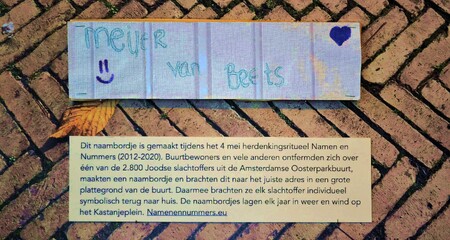 meijer
van Beets
Dit naambordje is gemaakt tijdens het 4 mei herdenkingsritueel Namen en
Nummers (2012-2020). Buurtbewoners en vele anderen ontfermden zich over
één van de 2.800 Joodse slachtoffers uit de Amsterdamse Oosterparkbuurt,
maakten een naambordje en brachten dit naar het juiste adres in een grote
plattegrond van de buurt. Daarmee brachten ze elk slachtoffer individueel
symbolisch terug naar huis. De naambordjes lagen elk jaar in weer en wind op
het Kastanjeplein. Namenennummers.eu